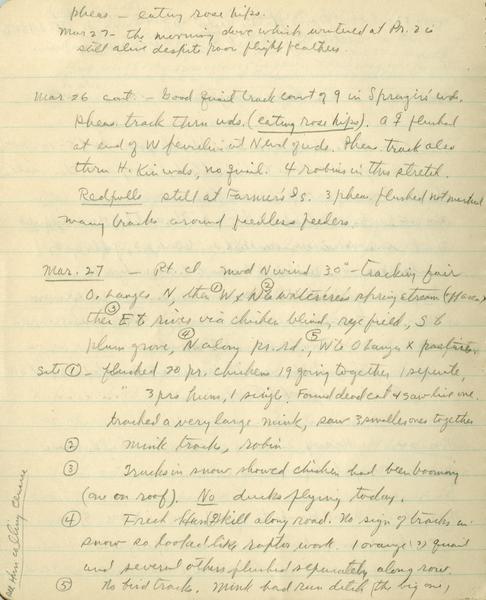 pheas - eating rose hips.
Mar 27 - the morning dove which wintered at Pr. 2 is
still alive despite poor flight feathers.
Mar. 26 cont. - Good quail track count of 9 in Spragin's wds.
Pheas. track thru wds. (eating rose hips). A ♀ flushed
at end of W fenceline W end of wds. Pheas. track also
thru H. wds, no quail. 4 robins in this stretch.
Redpolls still at Farmer's Is. 3 pheas. flushed not
many tracks around feedless feeders.
Mar. 27 - Pt. cl mod N wind 30° - tracking fair
O. Langes N, then ① W & N to watercress spring stream
then ③ E to river via chicken blind, rye field, S to
plum grove, ④ N along pr. rd., ⑤ W to O Langes X
Site ① - flushed 20 pr. chickens 19 going together 1 separate,
" 3 prs huns, 1 single. Found dead cat & saw live one.
tracked a very large mink, saw 3 smaller ones together
② Mink tracks, robin
③ Tracks in snow showed chicken had been booming
(one on roof). No ducks flying today.
④ Fresh kill along road. No sign of tracks in
snow so looked like raptor work. 1 orange (?) quail
and several others flushed separately along row.
⑤ No bird tracks. Mink had run ditch (the big one,
calling